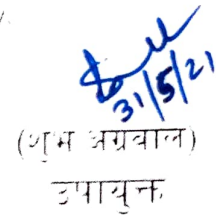 31/5/21
(शुभ अग्रवाल)
उपायुक्त